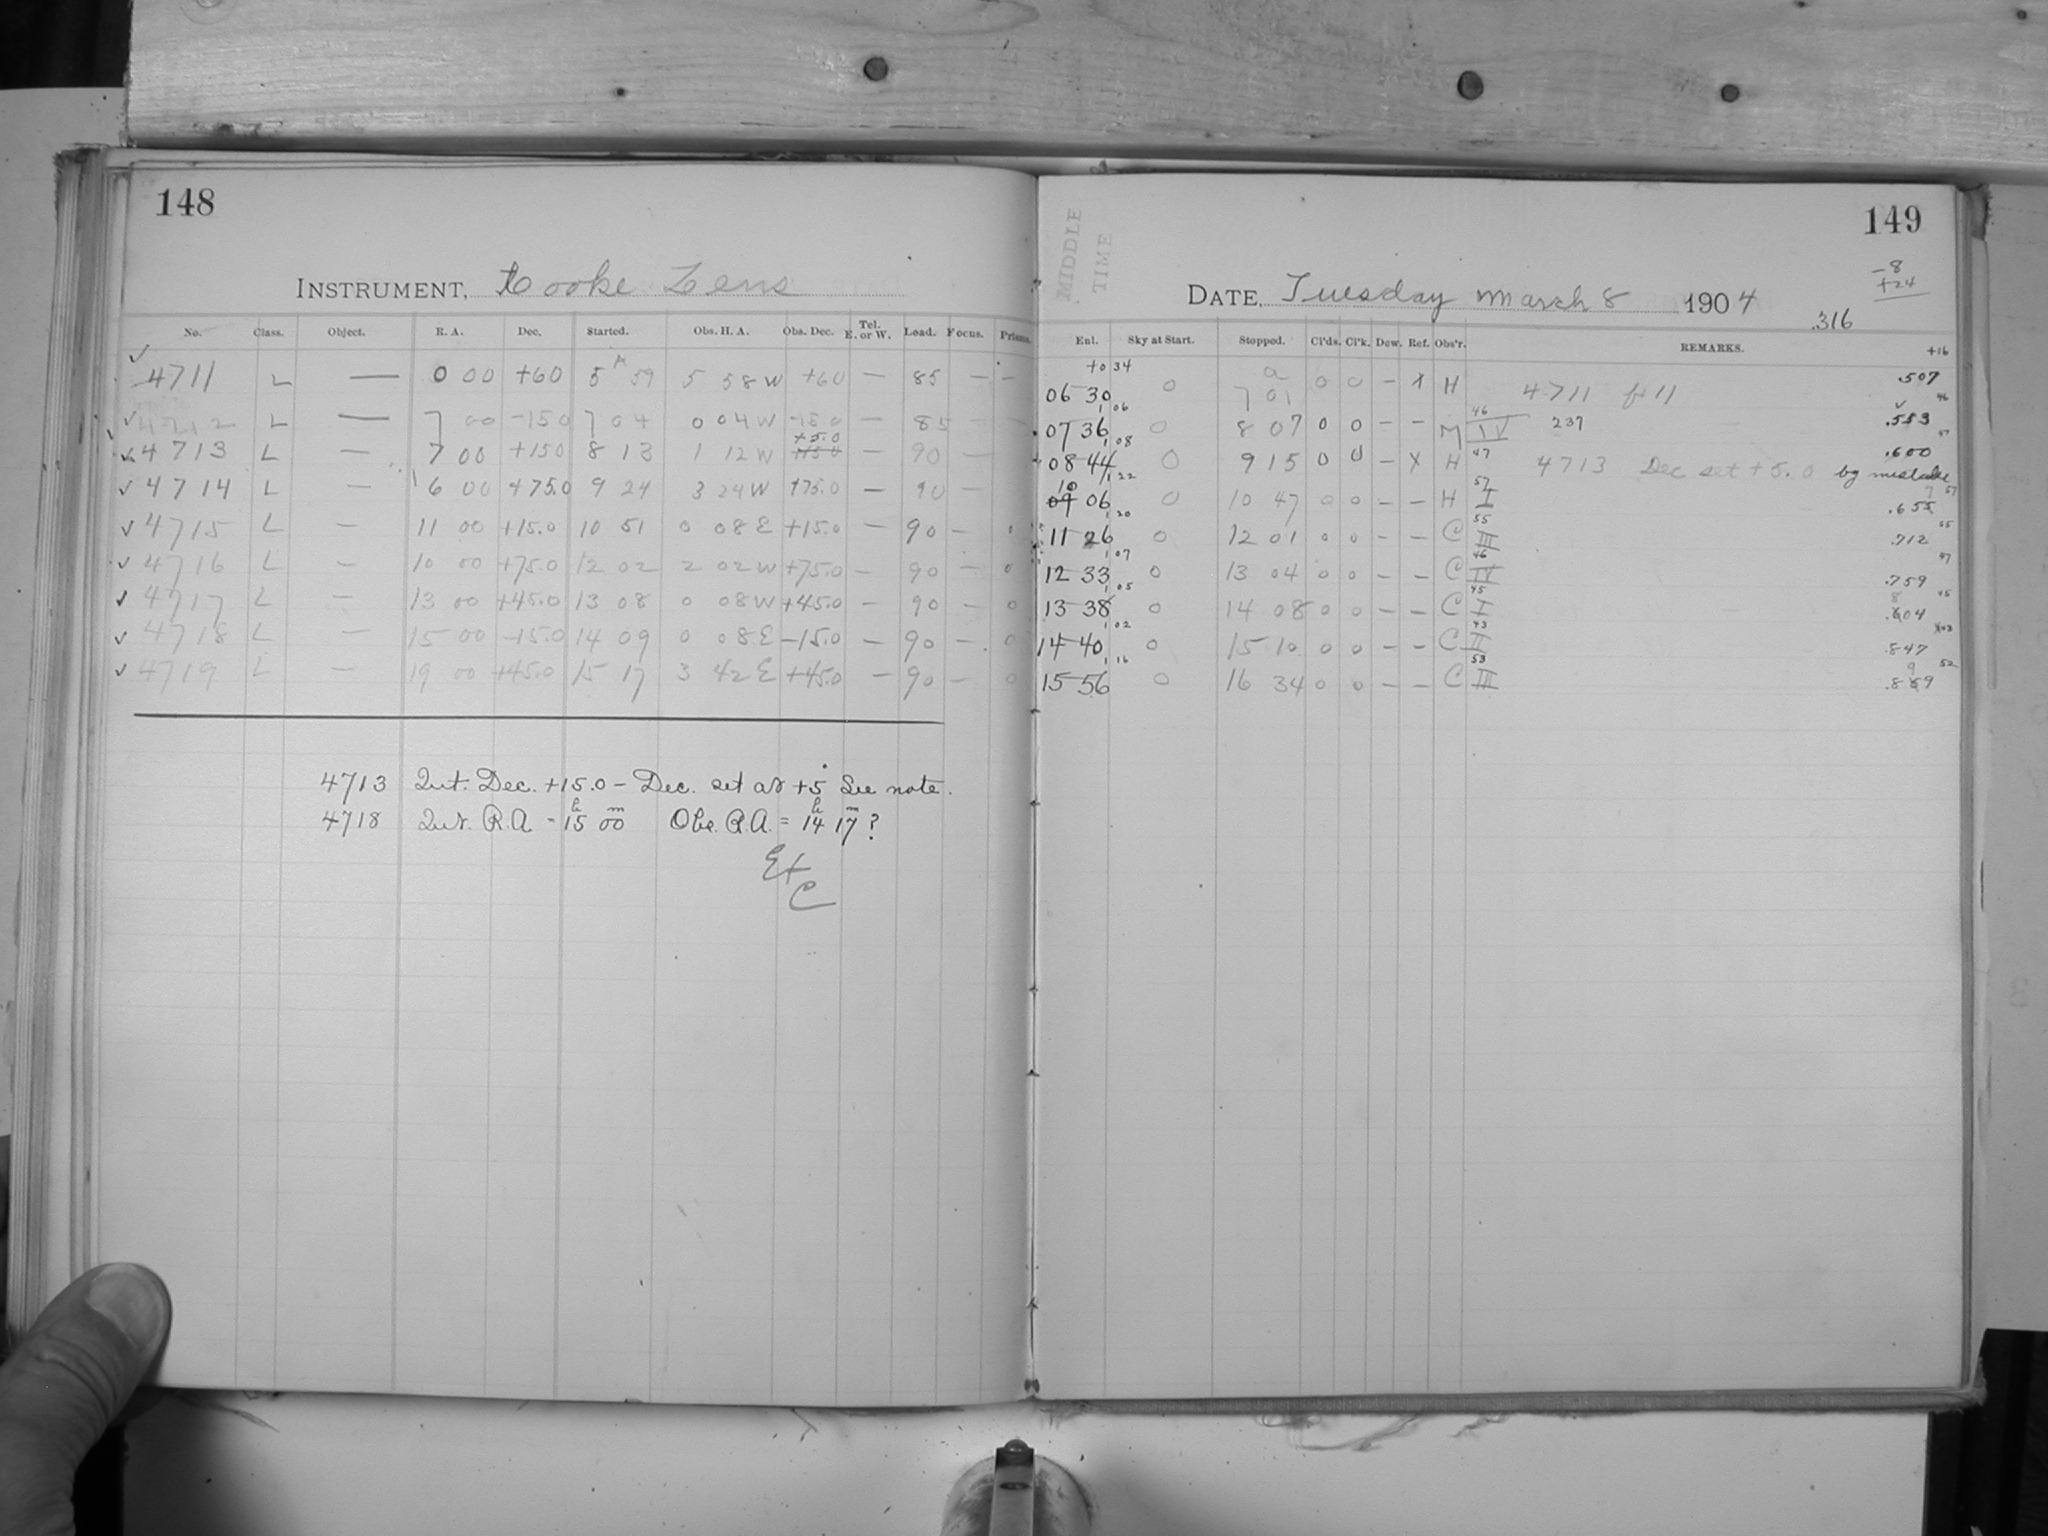 148
INSTRUMENT, Cooke Lens
No. Class. Object. R. A. Dec. Started. Obs. H. A. Obs. Dec. Tel. E. or W. Load. Focus. Prisms.
✓ 4711 L — 0 00 +60 5 59 5 58 W +60 — 85 — —
✓ 4712 L — 7 00 -15.0 7 04 0 04 W -15.0 — 85 —
✓ 4713 L — 7 00 +15.0 8 13 1 12 W +5.0 — 90 —
✓ 4714 L — 6 00 +75.0 9 24 3 24 W +75.0 — 90 —
✓ 4715 L — 11 00 +15.0 10 51 0 08 E +15.0 — 90 —
✓ 4716 L — 10 00 +75.0 12 02 2 02 W +75.0 — 90 — 0
✓ 4717 L — 13 00 +45.0 13 08 0 08 W +45.0 — 90 — 0
✓ 4718 L — 15 00 -15.0 14 09 0 08 E -15.0 — 90 — 0
✓ 4719 L — 19 00 +45.0 15 17 3 42 E +45.0 — 90 — 0
4713 Int. Dec. +15.0 - Dec. set at +5 See note.
4718 Int. R.A. - 15h 00m Obs. R.A. = 14h 17m ?
Ex
C
149
MIDDLE
TIME
-8
+24
DATE, Tuesday March 8 1904
.316
Ent. Sky at Start. Stopped. Cl'ds. Cl'k. Dew. Ref. Obs'r. REMARKS.
+16
+0 34
06 30 0 7 01 0 0 — X H 4711 .507
1 06 46 46
07 36 0 8 07 0 0 — — M IV 237 .553
1 08 47 47
08 44 0 9 15 0 0 — X H 4713 Dec set +5.0 by mistake .600
1 22 57 57
10 06 0 10 47 0 0 — — H I .657
1 20 55 55
11 26 0 12 01 0 0 — — C III .712
1 07 46 47
12 33 0 13 04 0 0 — — C IV .759
1 05 45 45
13 38 0 14 08 0 0 — — C I .804
1 02 43 43
14 40 0 15 10 0 0 — — C II .847
1 16 53 52
15 56 0 16 34 0 0 — — C III .899